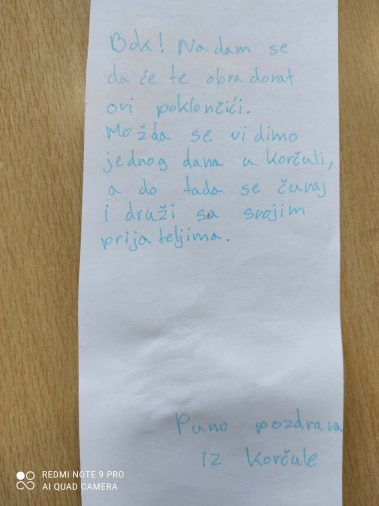 Bok! Nadam se
da će te obradovat
ovi poklončići.
Možda se vidimo
jednog dana u Korčuli,
a do tada se čuvaj
i druži sa svojim
prijateljima.
Puno pozdrava
iz Korčule
REDMI NOTE 9 PRO
AI QUAD CAMERA